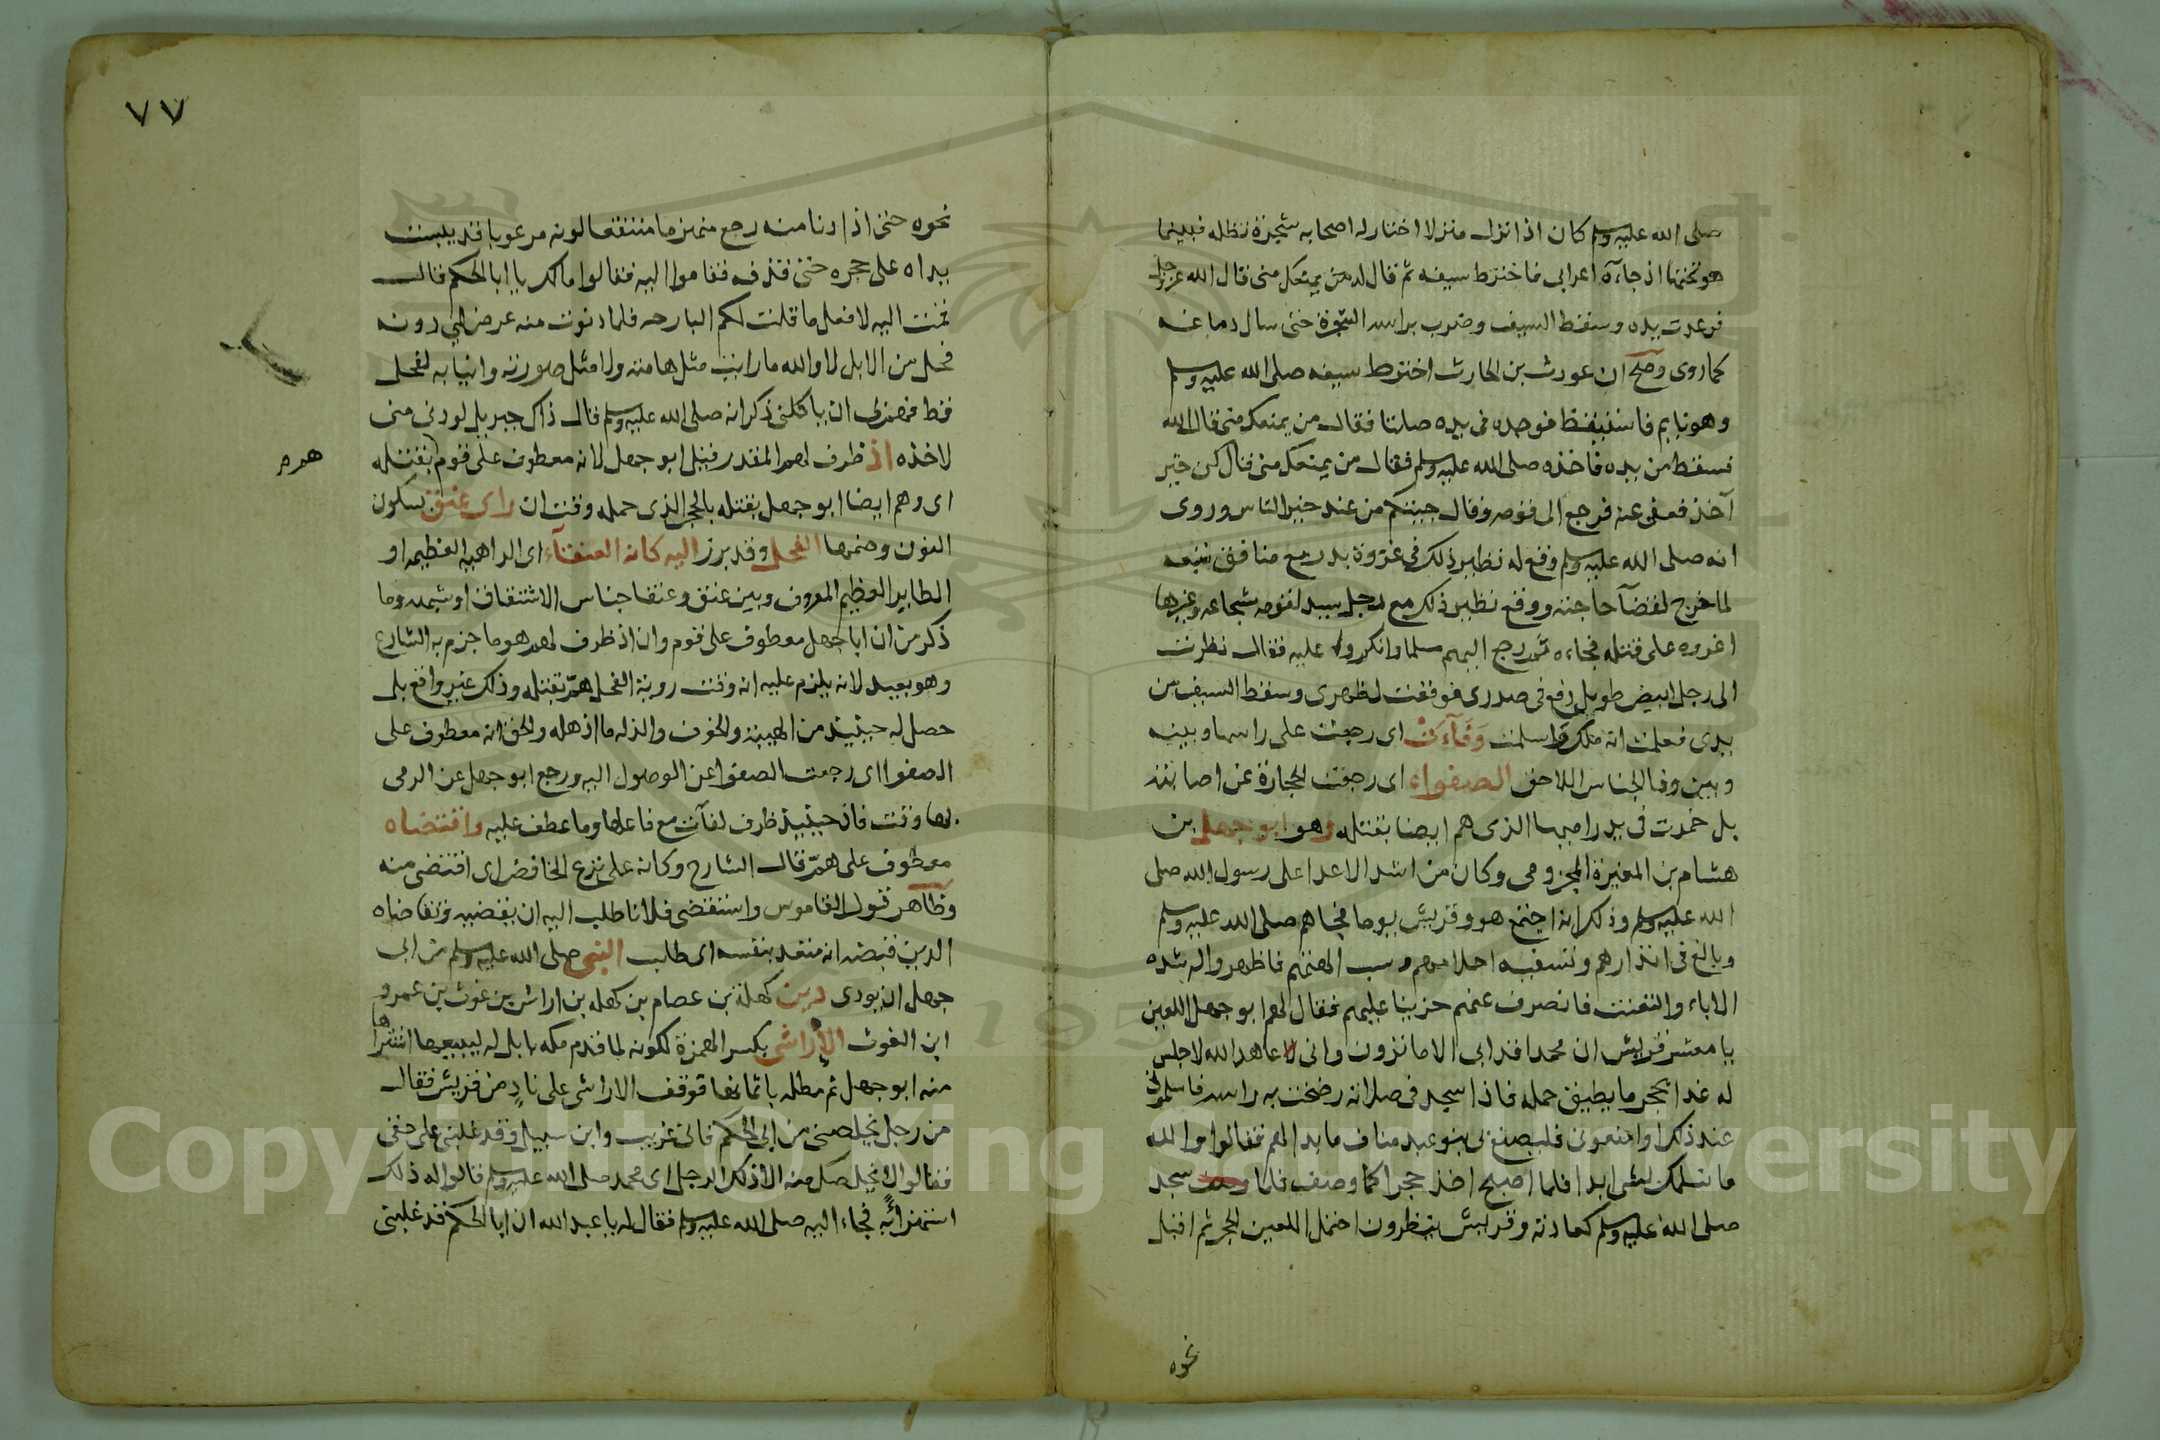 صلى الله عليه وسلم كان اذا نزل منزلا اختار له اصحابه شجرة تظله فبينما
هو تحتها اذ جاءه اعرابي فاخترط سيفه ثم قال له من يمنعك مني قال الله عز وجل
فرعدت يده وسقط السيف وضرب براسه الشجرة حتى سال دماغه
كما روى وصح ان غورث بن الحارث اخترط سيفه صلى الله عليه وسلم
وهو نايم فاستيقظ فوجده في يده صلتا فقال من يمنعك مني قال الله
فسقط من يده فاخذه صلى الله عليه وسلم فقال من يمنعك مني قال كن خير
آخذ فعفى عنه فرجع الى قومه وقال جيتكم من عند خير الناس وروى
انه صلى الله عليه وسلم وقع له نظير ذلك في غزوة بدر مع منافق تبعه
لما خرج لقضآ حاجته ووقع نظير ذلك مع رجل سيد لقومه شجاعه وغيرها
اغروه على قتله فجاءه ثم رجع اليهم مسلما وانكروا عليه فقال نظرت
الى رجل ابيض طويل دفع في صدري فوقعت لظهري وسقط السيف من
يدي فعلمت انه ملك واسلمت وَفَآءَتْ اى رجعت على راسها وبينه
وبين وفا الجناس اللاحق الصفواء اى رجعت الحجارة عن اصابته
بل خمدت في يد راميها الذي هم ايضا بقتله وهو ابو جهل بن
هشام بن المغيرة المخزومي وكان من اشد الاعدا على رسول الله صلى
الله عليه وسلم وذلك انه اجتمع هو وقريش يوما فجاهم صلى الله عليه وسلم
وبالغ في انذارهم وتسفيه احلامهم وسب الهتهم فاظهروا له شدة
الاباء والتعنت فانصرف عنهم حزينا عليهم فقال لهم ابو جهل اللعين
يا معشر قريش ان محمدا قد ابى الا ما تزون واني لاعاهد الله لاجلس
له غدا بحجر ما يطيق حمله فاذا سجد في صلاته رضخت به راسه فاسلموني
عند ذلك او امنعوني فليصنع بي بنو عبد مناف ما بدا لهم فقالوا والله
ما نسلمك لشى ابدا فلما اصبح اخذ حجرا كما وصف فلما سجد
صلى الله عليه وسلم كعادته وقريش ينظرون احتمل اللعين الحجر ثم اقبل
نحوه
٧٧
نحوه حتى اذا دنا منه رجع منهزما منتقعا لونه مرعوبا قد يبست
يداه على حجره حتى قذفه فقاموا اليه فقالوا مالك يا ابا الحكم قال
قمت اليه لافعل ما قلت لكم البارحه فلما دنوت منه عرض لي دونه
فحل من الابل لا والله ما رايت مثل هامته ولا مثل صورته وانيابه لفحل
قط فهم بي ان ياكلني ذكر انه صلى الله عليه وسلم قال ذاك جبريل لو دنى مني
لاخذه اذ ظرف لهم المقدر قبل ابو جهل لانه معطوف على قوم بقتله
هم
اى وهم ايضا ابو جهل بقتله بالحجر الذي حمله وقت ان راى عنق بسكون
النون وضمها الفحل وقد برز اليه كانه العنقآء اى الداهيه العظيمه او
الطاير العظيم المعروف وبين عنق وعنقا جناس الاشتقاق او شبهه وما
ذكر من ان ابا جهل معطوف على قوم وان اذ ظرف لهم هو ما جزم به الشارع
وهو بعيد لانه يلزم عليه انه وقت روية الفحل همّ بقتله وذلك غير واقع بل
حصل له حينيذ من الهيبة والخوف والذله ما اذهله والحق انه معطوف على
الصفوا اى رجعت الصفوا عن الوصول اليه ورجع ابو جهل عن الرمي
بها وقت فاذ حينيذ ظرف لفآت مع فاعلها وما عطف عليه واقتضاه
معطوف على همّ قال الشارح وكانه على نزع الخافض اى اقتضى منه
وظاهر قول القاموس واستقضى فلانا طلب اليه ان يقضيه وتقاضاه
الدين قبضه انه متعد بنفسه اى طلب النبي صلى الله عليه وسلم من ابي
جهل ان يودي دين كهلة بن عصام بن كهله بن اراش بن غوث بن عمرو
ابن الغوث الإراشي بكسر الهمزة لكونه لما قدم مكه بابل له ليبيعها اشتراها
منه ابو جهل ثم مطله باثمانها فوقف الاراشي على نادٍ من قريش فقال
من رجل يخلصني من ابي الحكم فاني غريب وابن سبيل وقد غلبني على حقي
فقالوا لا يخلصك منه الا ذلك الرجل اى محمد صلى الله عليه وسلم قالوا له ذلك
استهزاءً به فجاء اليه صلى الله عليه وسلم فقال له يا عبد الله ان ابا الحكم قد غلبني
Copyright © King Saud University